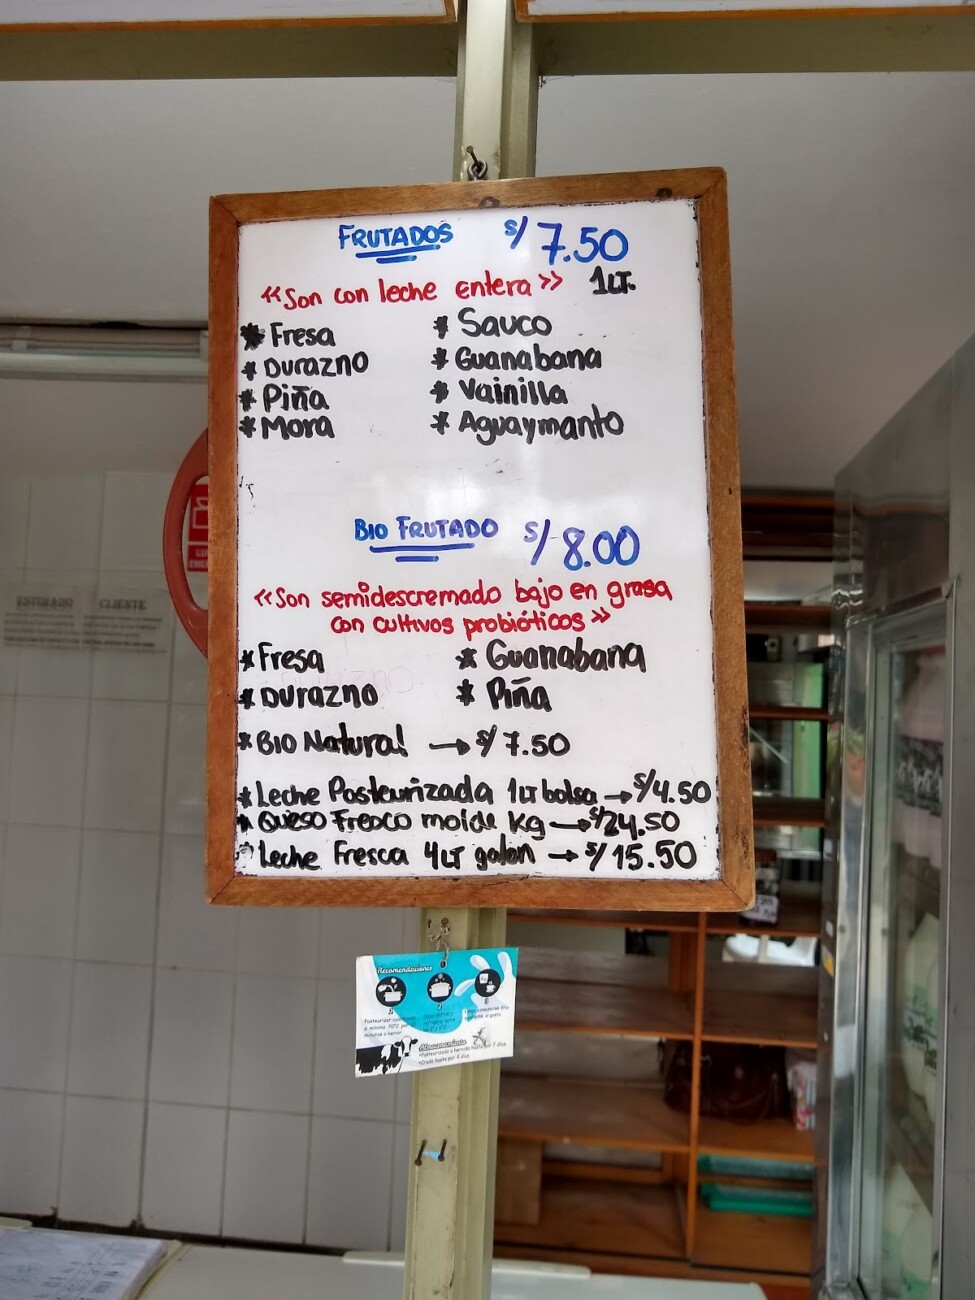 FRUTADOS S/ 7.50
«Son con leche entera» 1LT.
* Fresa
* Durazno
* Piña
* Mora
* Sauco
* Guanabana
* Vainilla
* Aguaymanto
BIO FRUTADO S/ 8.00
«Son semidescremado bajo en grasa
con cultivos probióticos»
* Fresa
* Durazno
* Guanabana
* Piña
* BIO Natural → S/ 7.50
* Leche Pasteurizada 1LT bolsa → S/4.50
* Queso Fresco molde Kg → S/24.50
* Leche Fresca 4LT galon → S/ 15.50
Recomendaciones
CLIENTE